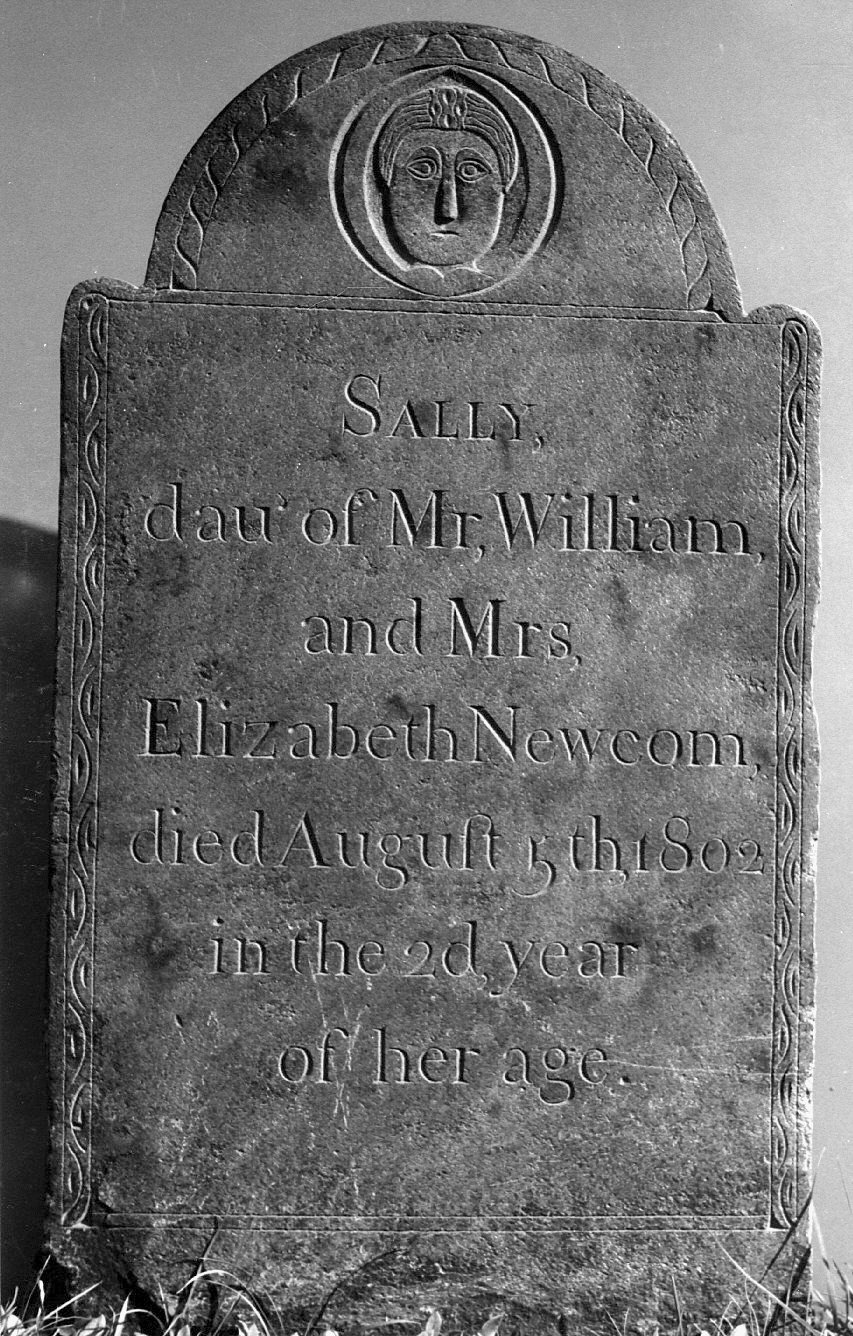 SALLY,
dau' of Mr, William,
and Mrs,
Elizabeth Newcom,
died Auguſt 5th, 1802
in the 2d, year
of her age.